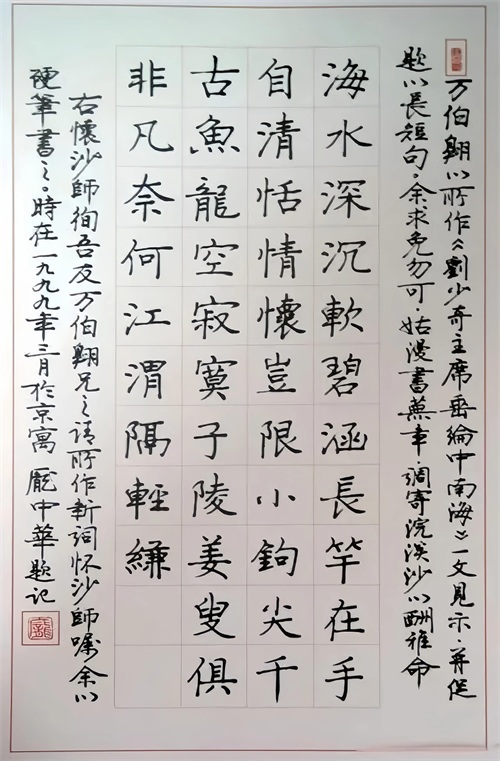 万伯翱以所作《劉少奇主席垂綸中南海》一文見示·并促
题以長短句。余求免勿可·姑漫書蕪章調寄浣溪沙以酬雅命
海水深沉軟碧涵長竿在手
自清恬情懷豈限小鉤尖千
古魚龍空寂寞子陵姜叟俱
非凡奈何江渭隔輕縑
右懷沙師徇吾友万伯翱兄之请所作新詞怀沙師嘱余以
硬筆書之。時在一九九九年三月於京寓 龐中華题记